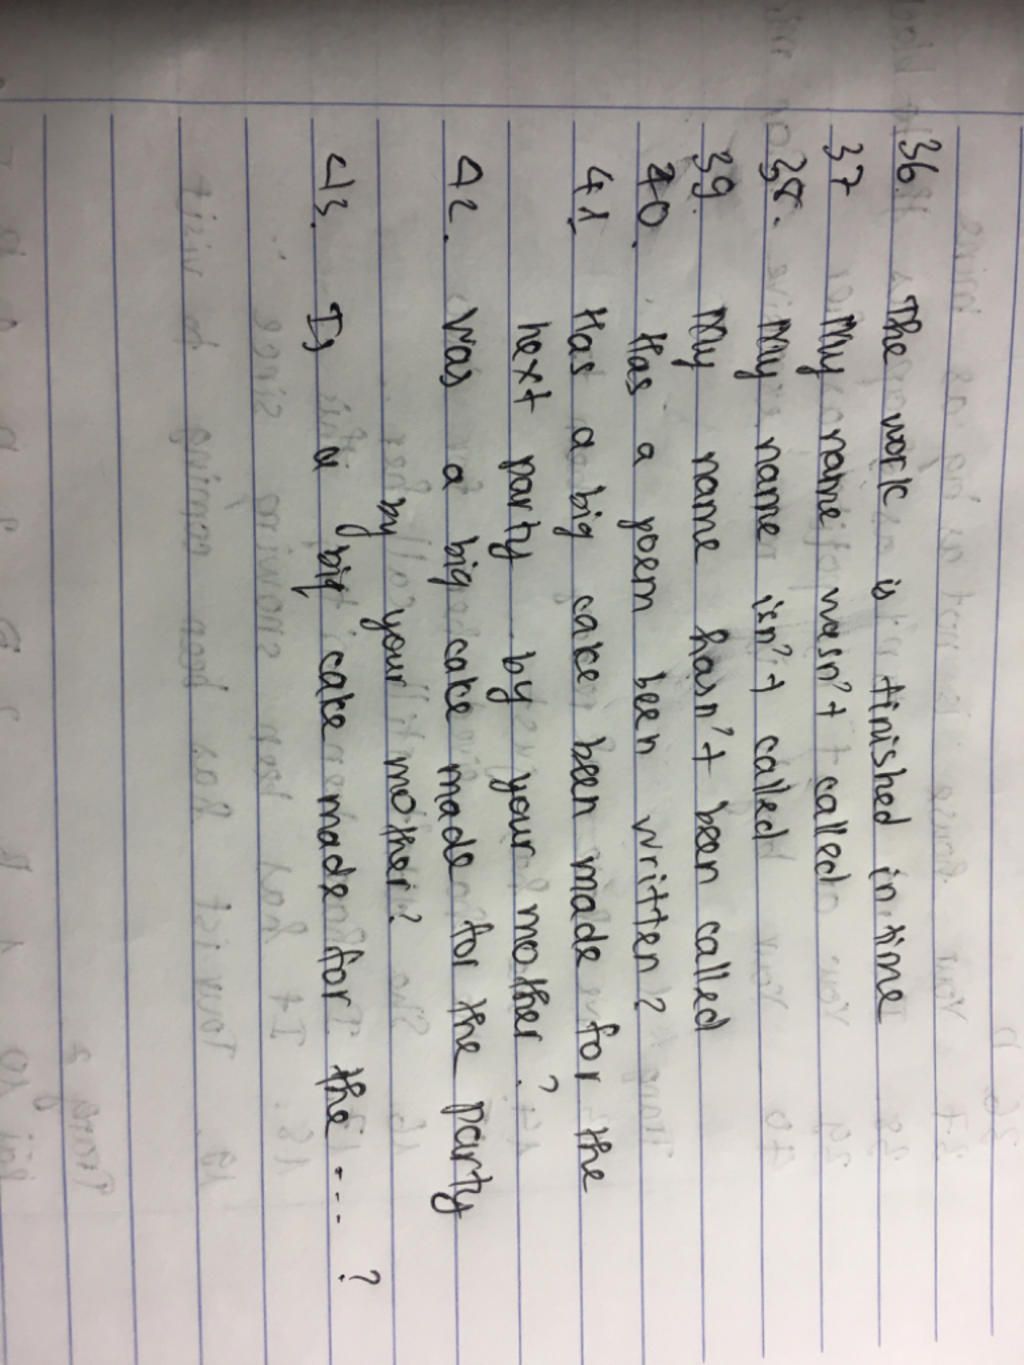 36. The work is finished in time
37 My name wasn't called
38. My name isn't called
39. My name hasn't been called
40. Has a poem been written?
41. Has a big cake been made for the
next party by your mother?
42. Was a big cake made for the party
by your mother?
43. Is a big cake made for the ... ?